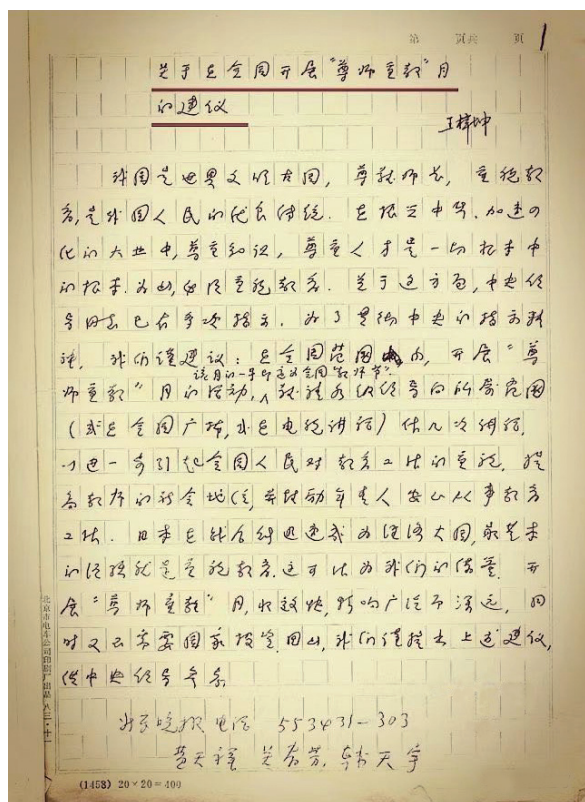 第 页共 页 1
关于在全国开展“尊师重教”月
的建议
王梓坤
我国是世界文明古国，尊敬师长，重视教
育，是我国人民的优良传统。在振兴中华、加速四
化的大业中，尊重知识，尊重人才是一切根本中
的根本。为此，必须重视教育。关于这方面，中央领
导同志已有多次指示。为了贯彻中央的指示精
神，我们谨建议：在全国范围内，开展“尊
该月的一号即定为全国“教师节”。
师重教”月的活动，敬请各级领导向所属范围
（或在全国广播，或在电视讲话）作几次讲话，
以进一步引起全国人民对教育工作的重视，提
高教师的社会地位，并鼓动年青人安心从事教育
工作。日本在战后能迅速成为经济大国，最基本
的经验就是重视教育，这可作为我们的借鉴。开
展“尊师重教”月，收效快，影响广泛而深远，同
时又不需要国家投资，因此，我们谨提出上述建议，
供中央领导参考。
北京晚报 电话 553431-303
黄天祥
北京市电车公司印刷厂出品 八三·十一
(1458) 20×20=400